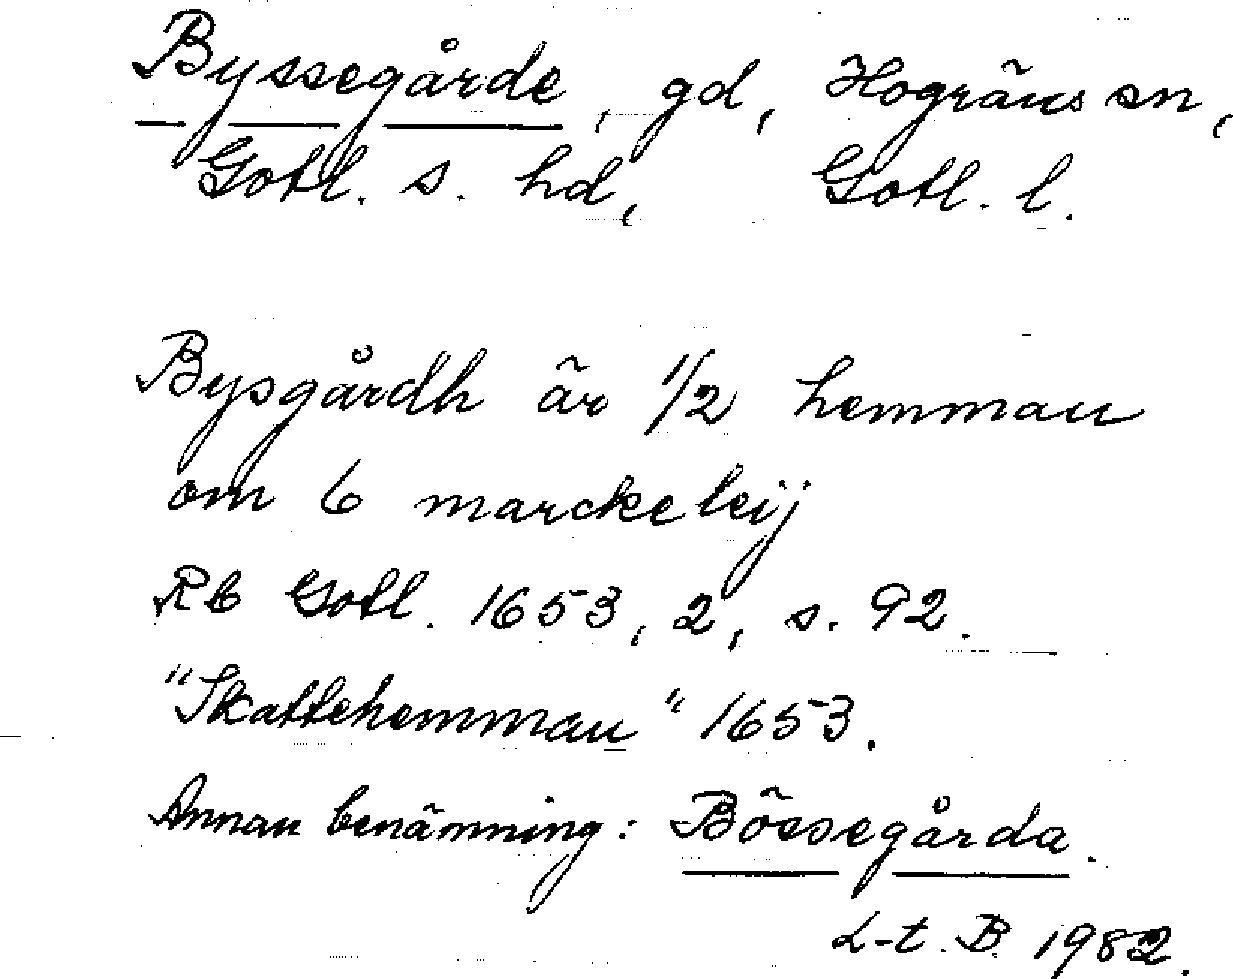 Byssegårde, gd, Hogräns sn,
Gotl. s. hd, Gotl. l.
Bysgårdh är 1/2 hemman
om 6 marckeleij
Rb Gotl. 1653, 2, s. 92.
"Skattehemman" 1653.
Annan benämning: Bössegårda.
L-t. B. 1982.